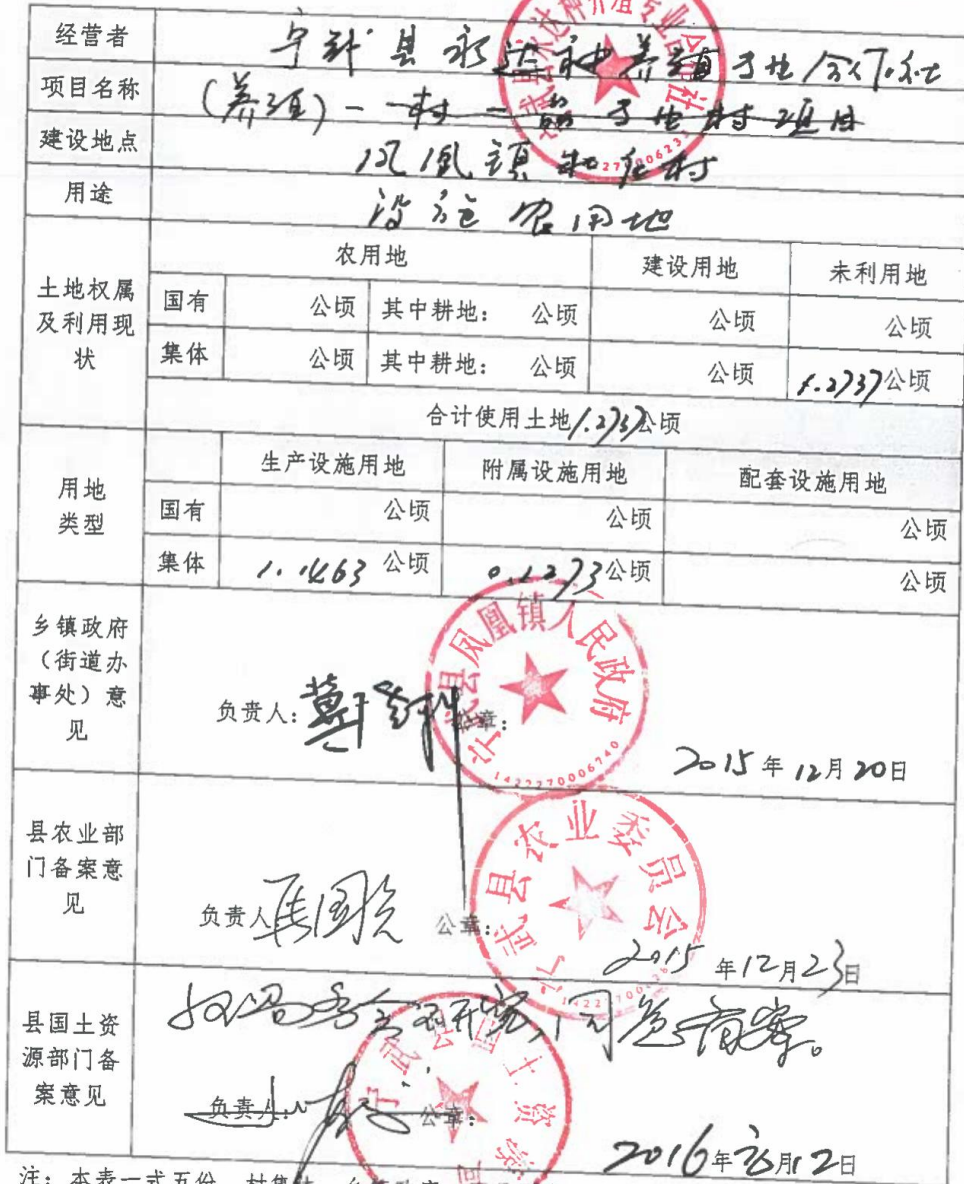 经营者 宁武县永达种养殖专业合作社
项目名称 (养殖)一村一品专业村项目
建设地点 凤凰镇
用途 设施农用地
土地权属及利用现状
农用地 建设用地 未利用地
国有 公顷 其中耕地: 公顷 公顷 公顷
集体 公顷 其中耕地: 公顷 公顷 1.2737公顷
合计使用土地1.2737公顷
用地类型
生产设施用地 附属设施用地 配套设施用地
国有 公顷 公顷 公顷
集体 1.1463 公顷 0.1273公顷 公顷
乡镇政府(街道办事处)意见
宁武县凤凰镇人民政府
1422270006740
负责人: 公章:
2015年12月20日
县农业部门备案意见
宁武县农业委员会
负责人 公章:
2015年12月23日
县国土资源部门备案意见
同意备案。
宁武县国土资源局
负责人: 公章:
2016年 月12日
注: 本表一式五份